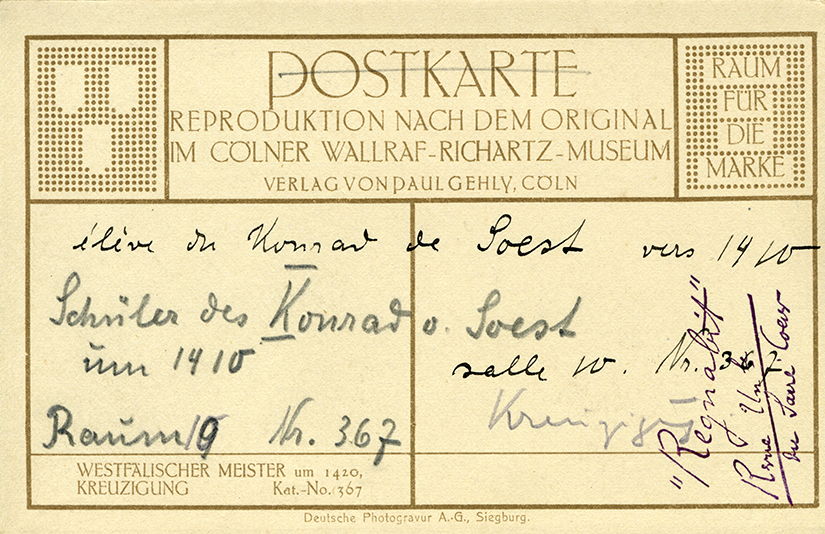 POSTKARTE
REPRODUKTION NACH DEM ORIGINAL
IM CÖLNER WALLRAF-RICHARTZ-MUSEUM
VERLAG VON PAUL GEHLY, CÖLN
RAUM
FÜR
DIE
MARKE
élève du Konrad de Soest vers 1410
Schüler des Konrad v. Soest
um 1410
salle 10. Nr. 367
Raum 10 Nr. 367
"Regnabit"
Revue Univ
du Sacré Coeur
WESTFÄLISCHER MEISTER um 1420,
KREUZIGUNG Kat.-No. 367
Deutsche Photogravur A.-G., Siegburg.